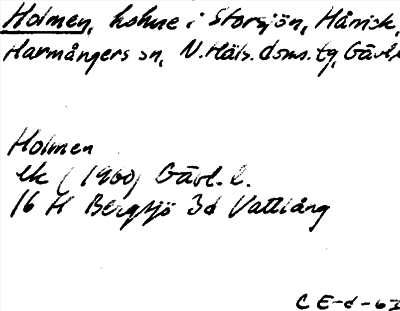 Holmen, holme i Storsjön, Hårsk,
Harmångers sn, N. Häls. doms. tg, Gävl.
Holmen
ek (1960) Gävl. l.
16 H Bergsjö 3d Vattlång
C E-d-63